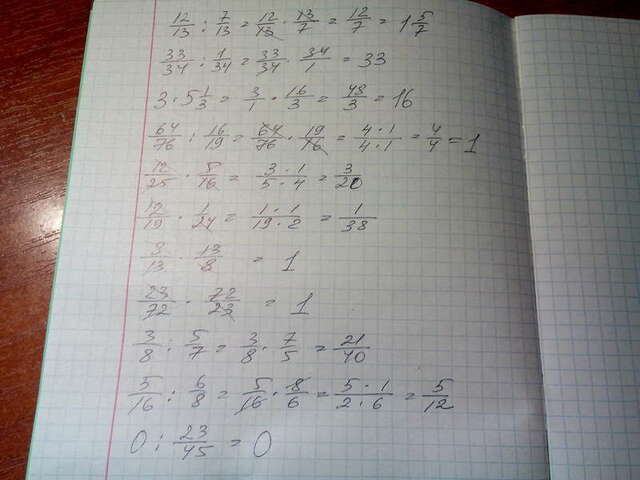 12/13 : 7/13 = 12/13 · 13/7 = 12/7 = 1 5/7
33/34 : 1/34 = 33/34 · 34/1 = 33
3 · 5 1/3 = 3/1 · 16/3 = 48/3 = 16
64/76 : 16/19 = 64/76 · 19/16 = 4·1/4·1 = 4/4 = 1
12/25 · 5/16 = 3·1/5·4 = 3/20
12/19 · 1/24 = 1·1/19·2 = 1/38
8/13 · 13/8 = 1
23/72 · 72/23 = 1
3/8 : 5/7 = 3/8 · 7/5 = 21/40
5/16 : 6/8 = 5/16 · 8/6 = 5·1/2·6 = 5/12
0 : 23/45 = 0